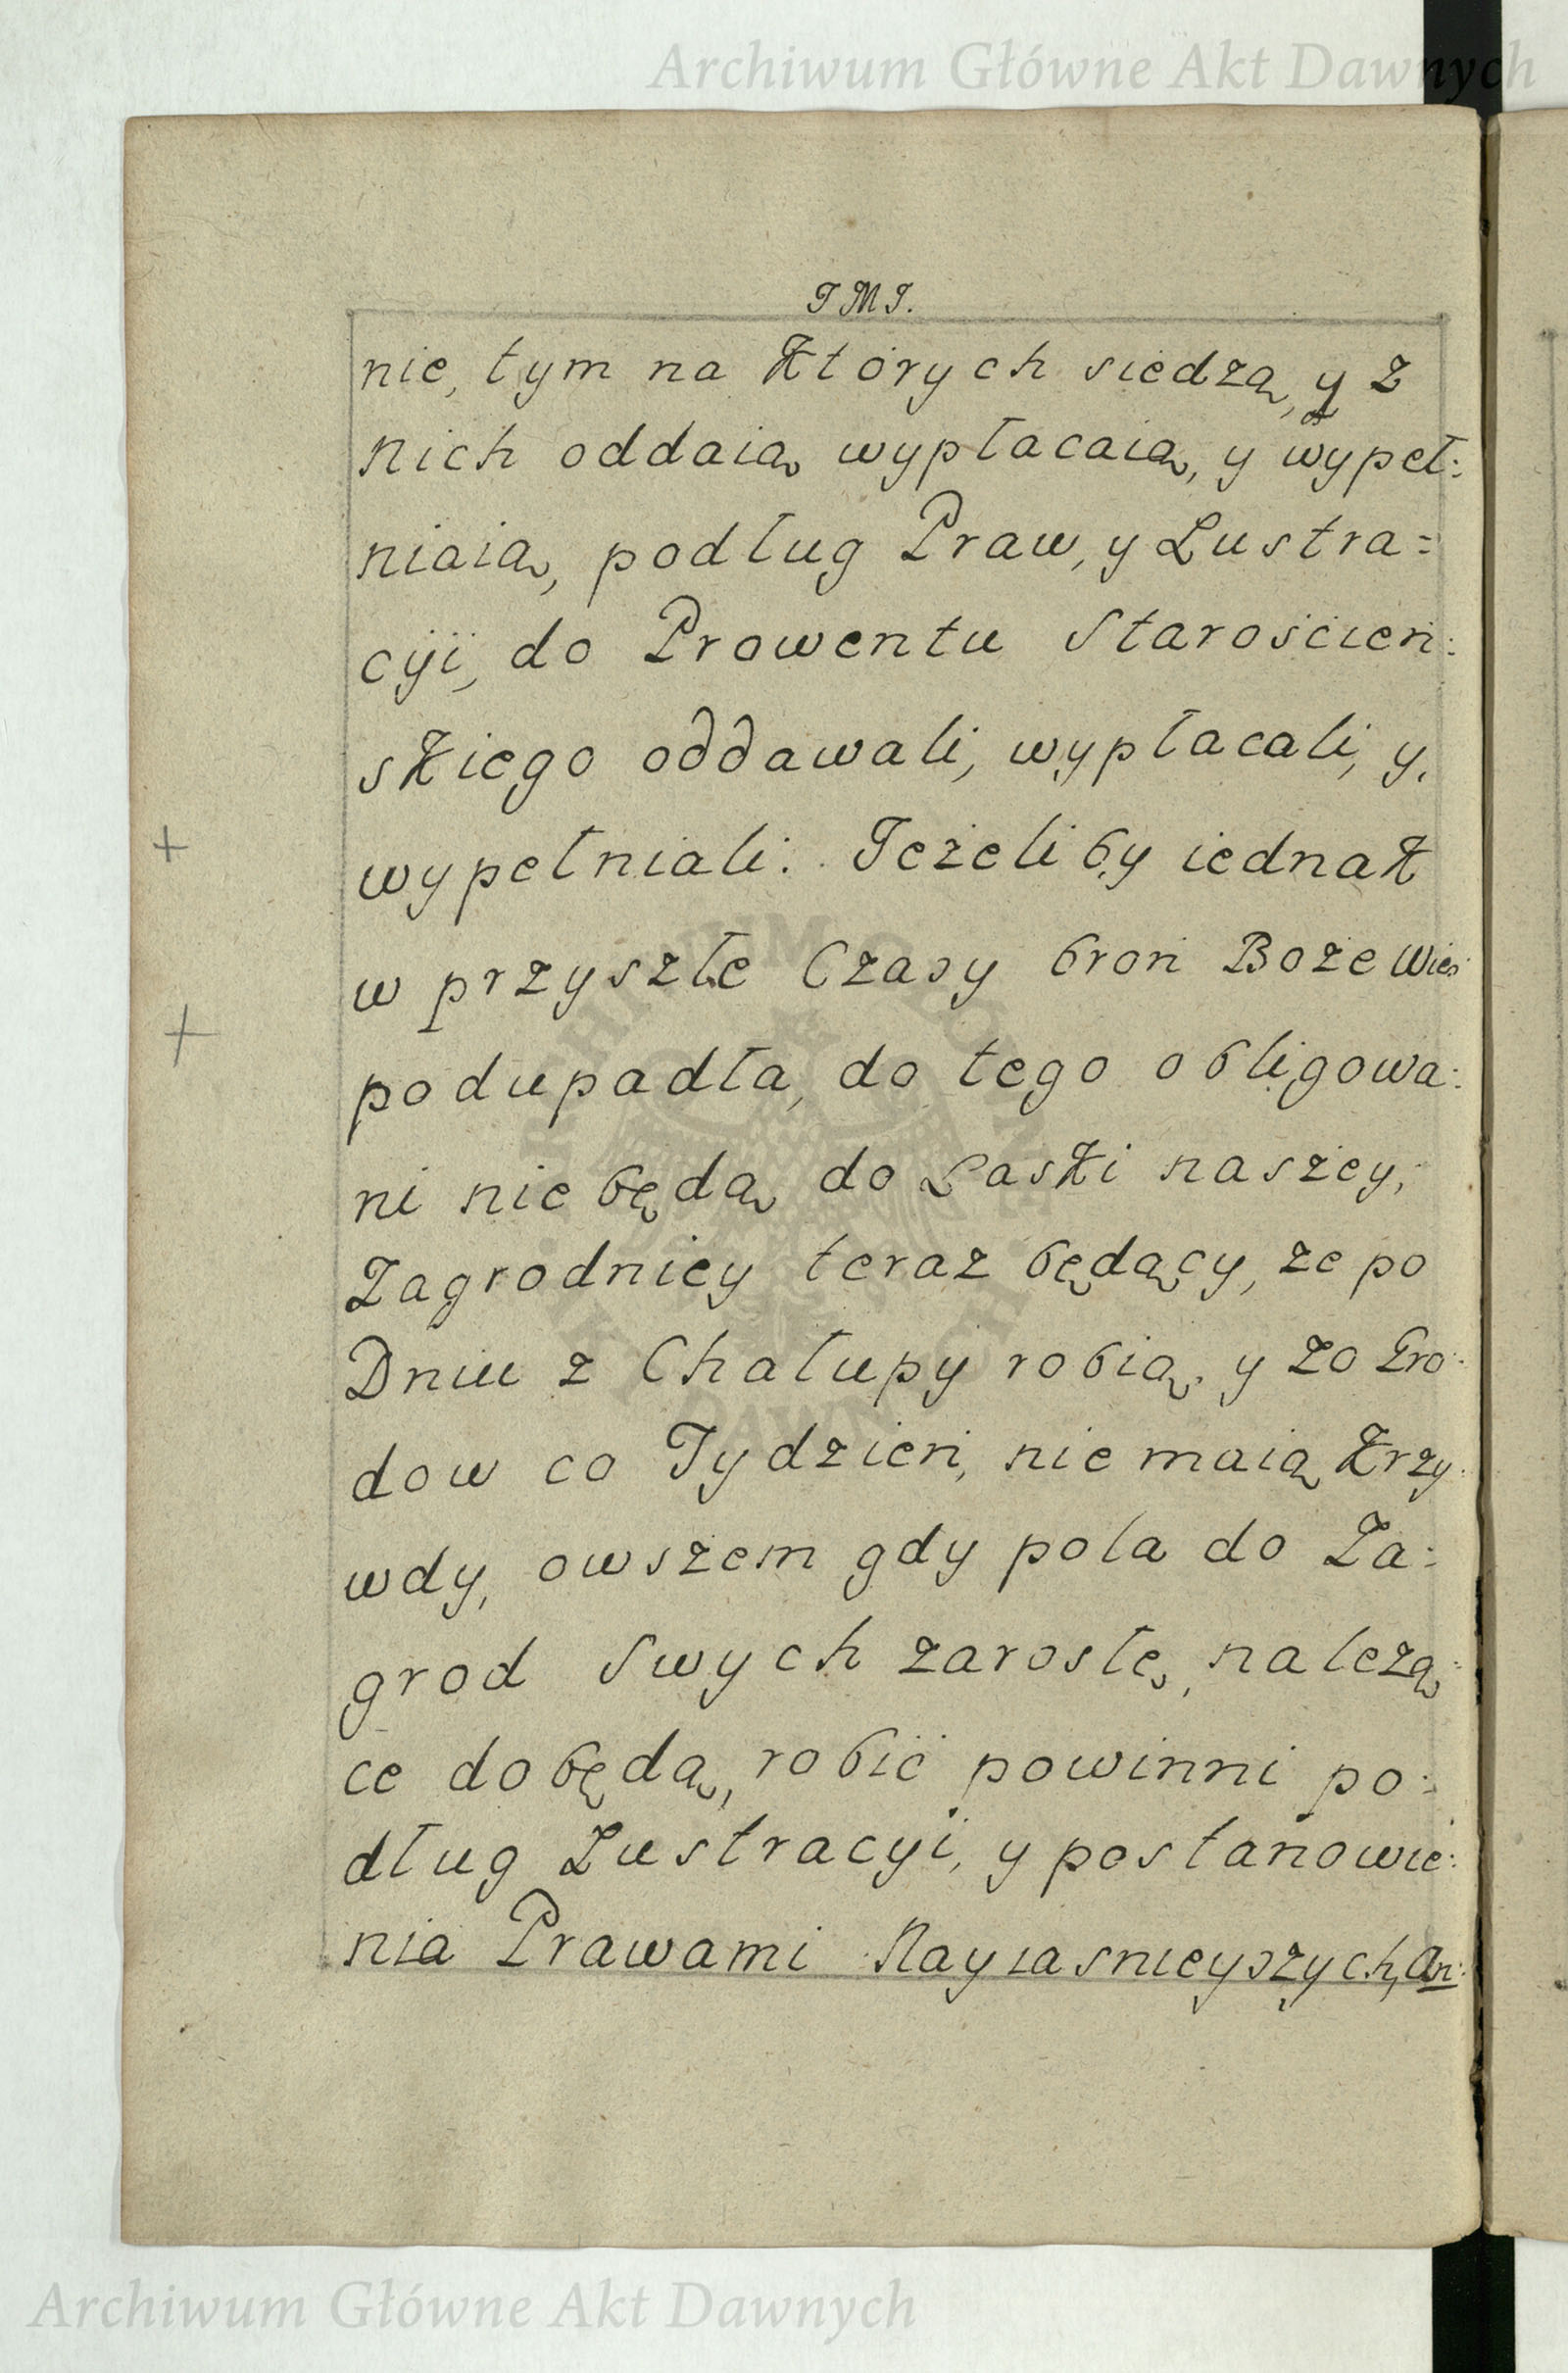 Archiwum Główne Akt Dawnych
J M J.
nie, tym na Których siedzą, y z
Nich oddaią wypłacaią, y wypeł:
niaią, podług Praw, y Lustra=
cÿi, do Prowentu Staroścień:
sKiego oddawali, wypłacali, y,
wypełniali: Jeżeliby iednaK
w przyszłe Czasy broń Boże Wieś
podupadła, do tego obligowa:
ni nie będą do ŁasKi naszey,
Zagrodnicy teraz będący, że po
Dniu z Chałupy robią, y Zo Gro:
dow co Tydzień, nie maią Krzy:
wdy, owszem gdy pola do Za:
grod Swych zarosłe, należą=
ce dobędą, robić powinni po:
dług Lustracyi, y postanowie:
nia Prawami Nayiasnieyszych, An:
Archiwum Główne Akt Dawnych